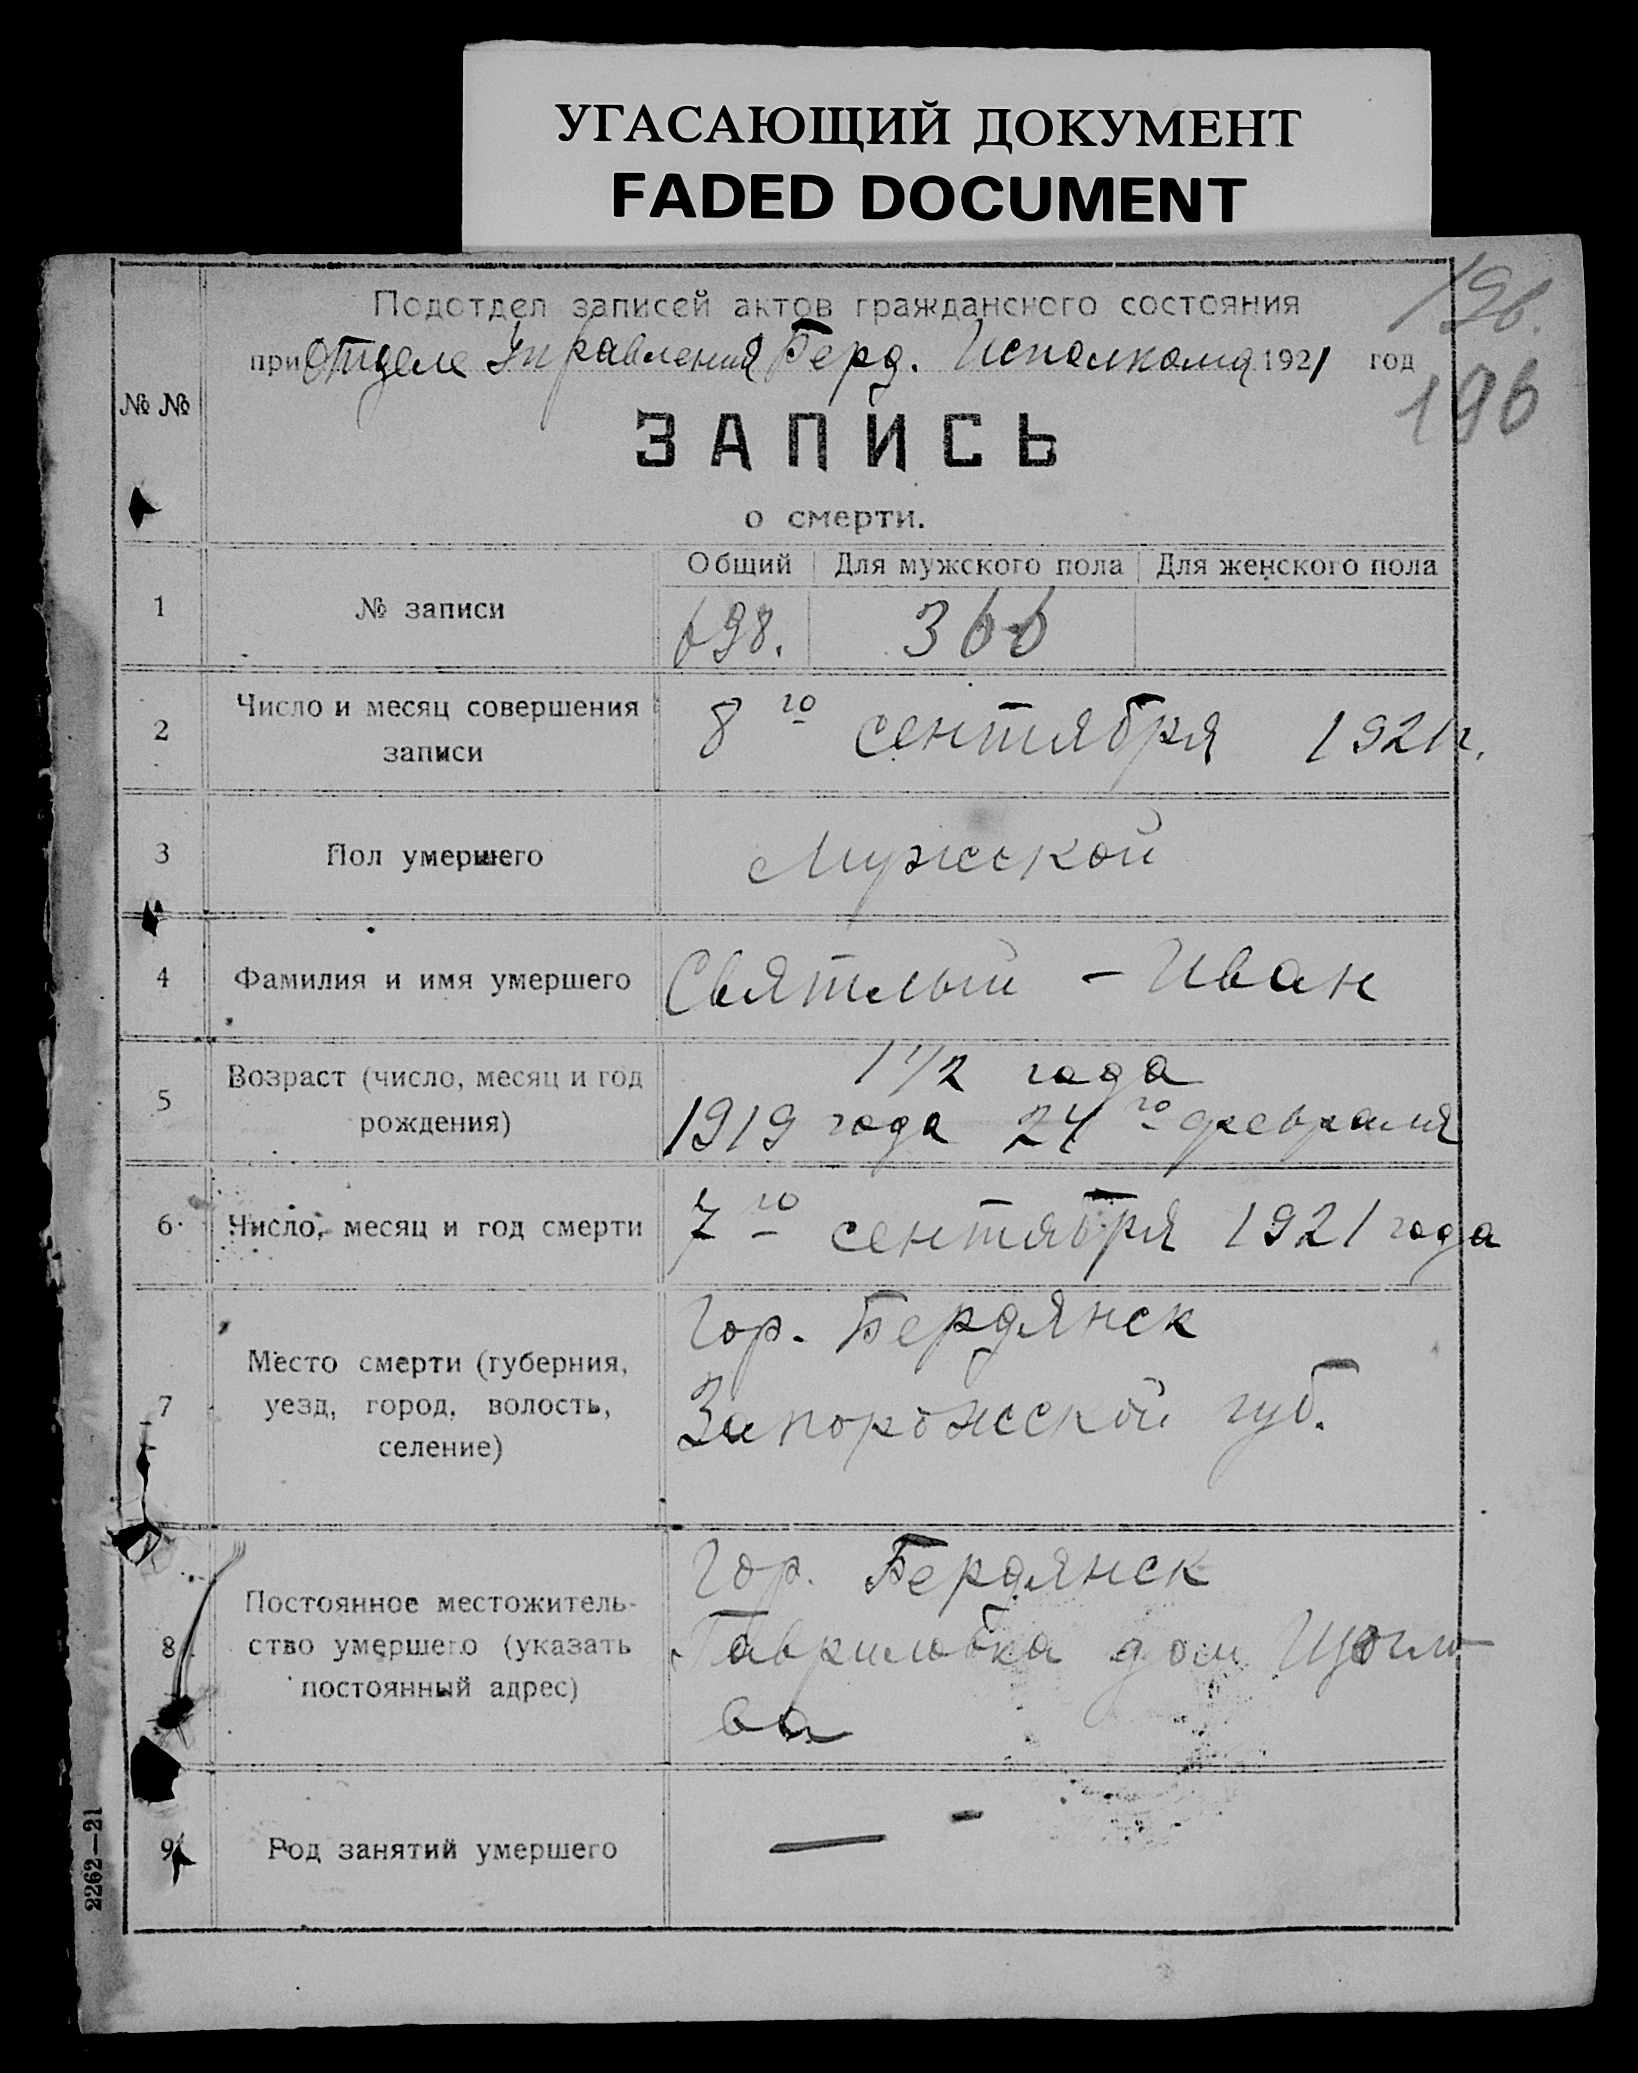 УГАСАЮЩИЙ ДОКУМЕНТ
FADED DOCUMENT
196.
Подотдел записей актов гражданского состояния
при Отделе Управления Берд. Исполкома 1921 год
196
№ №
ЗАПИСЬ
о смерти.
Общий Для мужского пола Для женского пола
1 № записи 698. 366
2 Число и месяц совершения
записи
8 го сентября 1921 г.
3 Пол умершего Мужской
4 Фамилия и имя умершего Святлый - Иван
5 Возраст (число, месяц и год
рождения)
1 1/2 года
1919 года 24 го февраля
6. Число, месяц и год смерти 7 го сентября 1921 года
7 Место смерти (губерния,
уезд, город, волость,
селение)
Гор. Бердянск
Запорожской губ.
8 Постоянное местожитель-
ство умершего (указать
постоянный адрес)
Гор. Бердянск
Гавриловка дом
ва
9 Род занятий умершего — -
2262—21